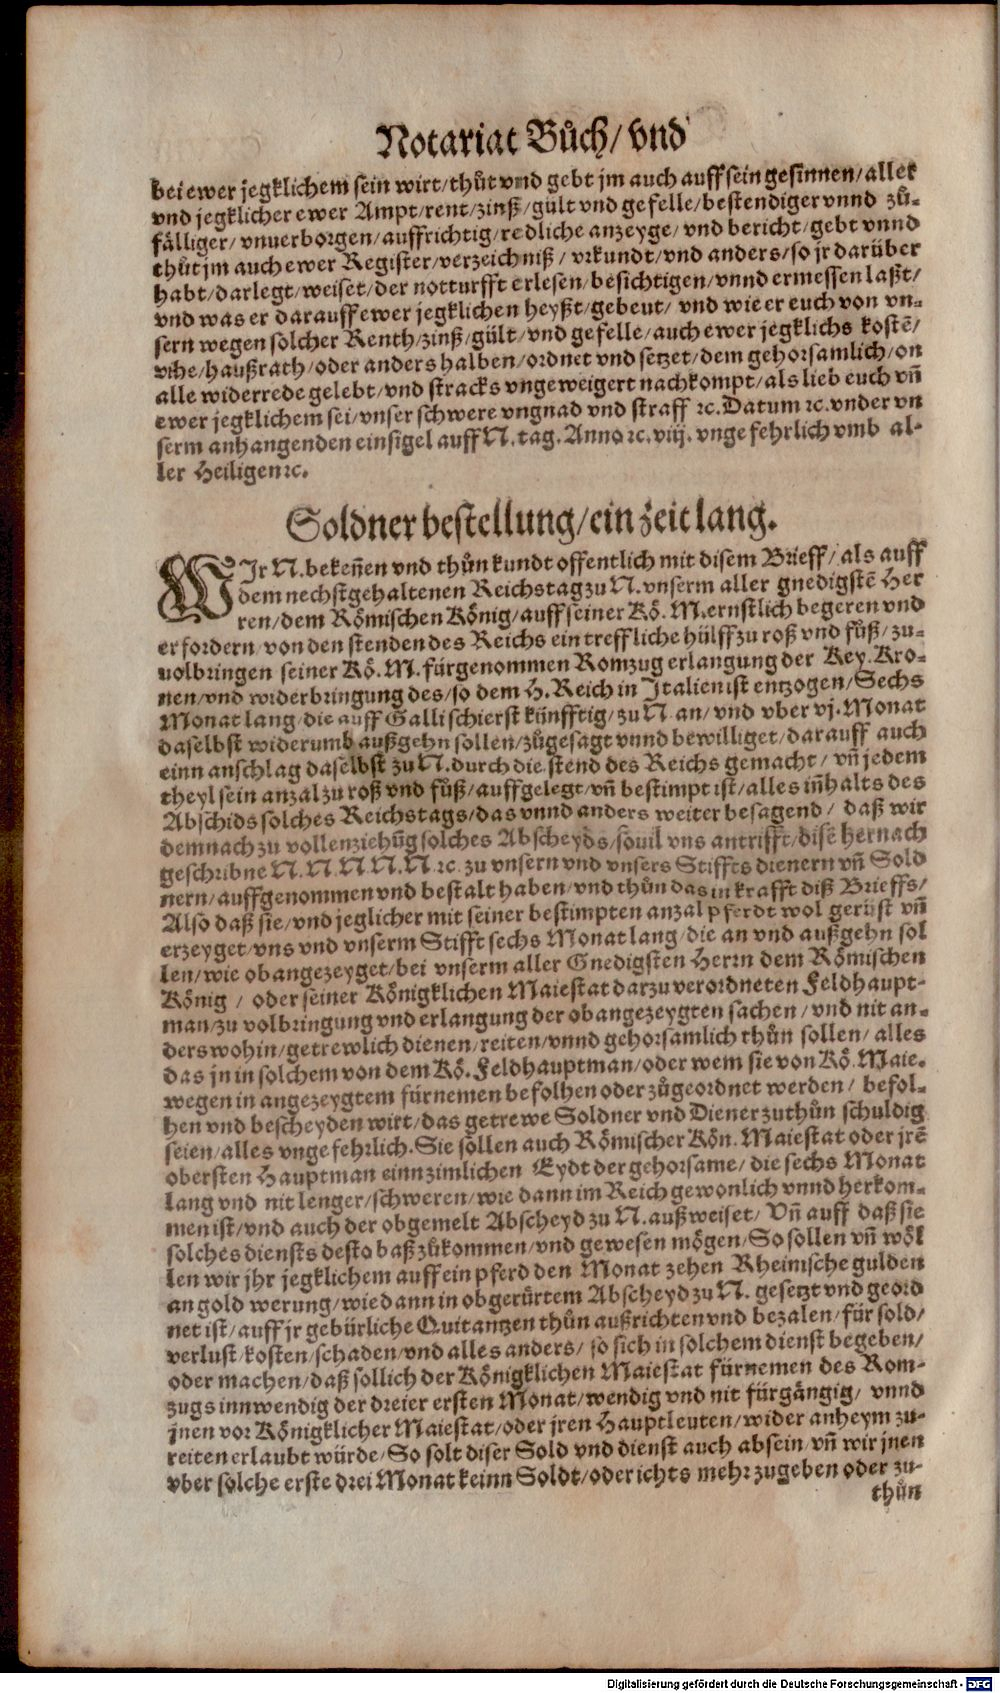 Notariat Bůch/ vnd
bei ewer jegklichem sein wirt/ thůt vnd gebt jm auch auff sein gesinnen/ aller
vnd jegklicher ewer Ampt/ rent/ zinß/ gült vnd gefelle/ bestendiger vnnd zů-
fälliger/ vnuerborgen/ auffrichtig/ redliche anzeyge/ vnd bericht/ gebt vnnd
thůt jm auch ewer Register/ verzeichniß/ vrkundt/ vnd anders/ so jr darüber
habt/ darlegt/ weiset/ der notturfft erlesen/ besichtigen/ vnnd ermessen laßt/
vnd was er darauff ewer jegklichen heyßt/ gebeut/ vnd wie er euch von vn-
sern wegen solcher Renth/ zinß/ gült/ vnd gefelle/ auch ewer jegklichs kostē/
vihe/ haußrath/ oder anders halben/ ordnet vnd setzet/ dem gehorsamlich/ on
alle widerrede gelebt/ vnd stracks vngeweigert nachkompt/ als lieb euch vñ
ewer jegklichem sei/ vnser schwere vngnad vnd straff ꝛc. Datum ꝛc. vnder vn
serm anhangenden einsigel auff N. tag. Anno ꝛc. viij. vngefehrlich vmb al-
ler Heiligen ꝛc.
Soldner bestellung/ ein zeit lang.
WJr N. bekeñen vnd thůn kundt offentlich mit disem Brieff/ als auff
dem nechstgehaltenen Reichstag zu N. vnserm aller gnedigstē Her
ren/ dem Römischen König/ auff seiner Kö. M. ernstlich begeren vnd
erfordern/ von den stenden des Reichs ein treffliche hülff zu roß vnd fůß/ zu-
uolbringen seiner Kö. M. fürgenommen Romzug erlangung der Key. Kro-
nen/ vnd widerbringung des/ so dem H. Reich in Jtalien ist entzogen/ Sechs
Monat lang/ die auff Galli schierst künfftig/ zu N. an/ vnd vber vj. Monat
daselbst widerumb außgehn sollen/ zůgesagt vnnd bewilliget/ darauff auch
einn anschlag daselbst zu N. durch die stend des Reichs gemacht/ vñ jedem
theyl sein anzal zu roß vnd fůß/ auffgelegt/ vñ bestimpt ist/ alles iñhalts des
Abschids solches Reichstags/ das vnnd anders weiter besagend/ daß wir
demnach zu vollenziehũg solches Abscheyds/ souil vns antrifft/ disē hernach
geschribne N. N. N. N. N. ꝛc. zu vnsern vnd vnsers Stiffts dienern vñ Sold
nern/ auffgenommen vnd bestalt haben/ vnd thůn das in krafft diß Brieffs/
Also daß sie/ vnd jeglicher mit seiner bestimpten anzal pferdt wol gerüst vñ
erzeyget/ vns vnd vnserm Stifft sechs Monat lang/ die an vnd außgehn sol
len/ wie obangezeyget/ bei vnserm aller Gnedigsten Herrn dem Römischen
König/ oder seiner Königklichen Maiestat darzu verordneten Feldhaupt-
man/ zu volbringung vnd erlangung der obangezeygten sachen/ vnd nit an-
derswohin/ getrewlich dienen/ reiten/ vnnd gehorsamlich thůn sollen/ alles
das jn in solchem von dem Kö. Feldhauptman/ oder wem sie von Kö. Maie.
wegen in angezeygtem fürnemen befolhen oder zůgeordnet werden/ befol-
hen vnd bescheyden wirt/ das getrewe Soldner vnd Diener zuthůn schuldig
seien/ alles vngefehrlich. Sie sollen auch Römischer Kön. Maiestat oder jrē
obersten Hauptman einn zimlichen Eydt der gehorsame/ die sechs Monat
lang vnd nit lenger/ schweren/ wie dann im Reich gewonlich vnnd herkom-
men ist/ vnd auch der obgemelt Abscheyd zu N. außweiset/ Vñ auff daß sie
solches diensts desto baß zůkommen/ vnd gewesen mögen/ So sollen vñ wöl
len wir jhr jegklichem auff ein pferd den Monat zehen Rheinische gulden
an gold werung/ wie dann in obgerürtem Abscheyd zu N. gesetzt vnd geord
net ist/ auff jr gebürliche Quitantzen thůn außrichten vnd bezalen/ für sold/
verlust/ kosten/ schaden/ vnd alles anders/ so sich in solchem dienst begeben/
oder machen/ daß sollich der Königklichen Maiestat fürnemen des Rom-
zugs innwendig der dreier ersten Monat/ wendig vnd nit fürgängig/ vnnd
jnen vor Königklicher Maiestat/ oder jren Hauptleuten/ wider anheym zu-
reiten erlaubt würde/ So solt diser Sold vnd dienst auch absein/ vñ wir jnen
vber solche erste drei Monat keinn Soldt/ oder ichts mehr zugeben oder zu-
thůn
Digitalisierung gefördert durch die Deutsche Forschungsgemeinschaft - DFG